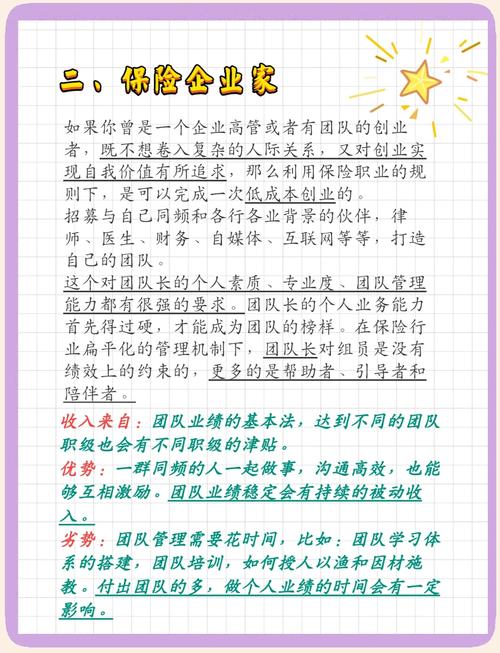 二、保险企业家
如果你曾是一个企业高管或者有团队的创业
者，既不想卷入复杂的人际关系，又对创业实
现自我价值有所追求，那么利用保险职业的规
则下，是可以完成一次低成本创业的。
招募与自己同频和各行各业背景的伙伴，律
师、医生、财务、自媒体、互联网等等，打造
自己的团队。
这个对团队长的个人素质、专业度、团队管理
能力都有很强的要求。团队长的个人业务能力
首先得过硬，才能成为团队的榜样。在保险行
业扁平化的管理机制下，团队长对组员是没有
绩效上的约束的，更多的是帮助者、引导者和
陪伴者。
收入来自：团队业绩的基本法，达到不同的团队
职级也会有不同职级的津贴。
优势：一群同频的人一起做事，沟通高效，也能
够互相激励。团队业绩稳定会有持续的被动收
入。
劣势：团队管理需要花时间，比如：团队学习体
系的搭建，团队培训，如何授人以渔和因材施
教。付出团队的多，做个人业绩的时间会有一定
影响。